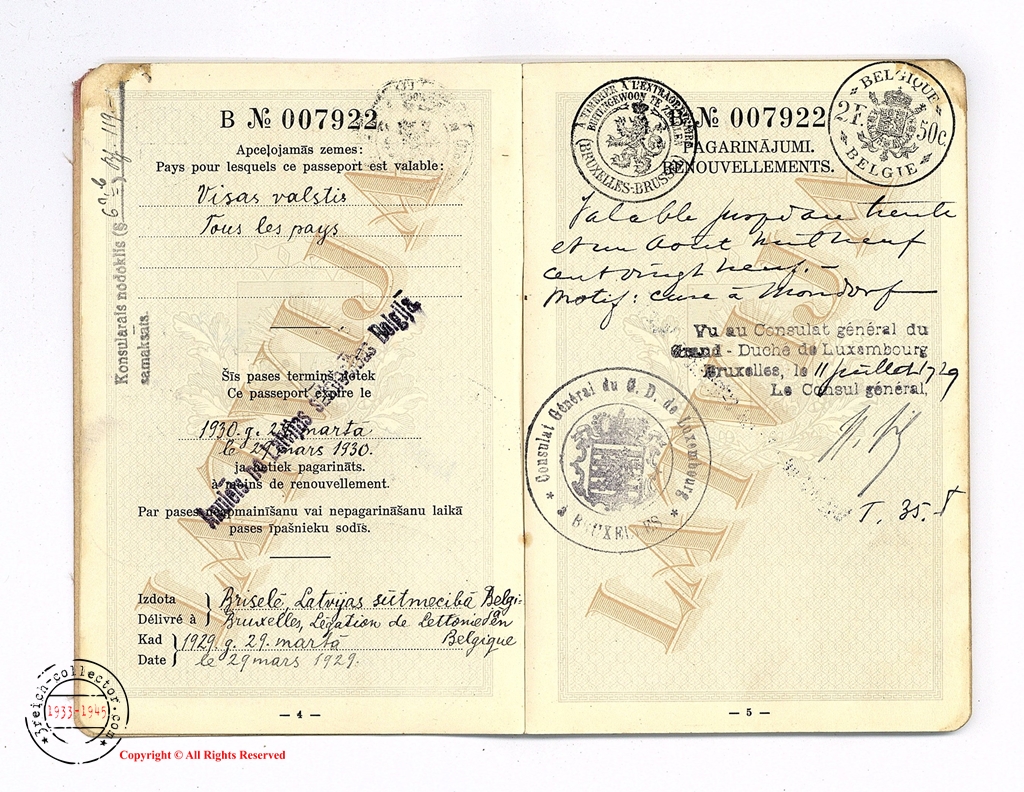 B № 007922
Apceļojamās zemes:
Pays pour lesquels ce passeport est valable:
Visas valstis
Tous les pays
Šīs pases termiņš notek
Ce passeport expire le
1930. g. 29. marta
le 29 mars 1930.
ja netiek pagarināts.
à moins de renouvellement.
Par pases neapmainīšanu vai nepagarināšanu laikā
pases īpašnieku sodīs.
Izdota
Briselē, Latvijas sūtniecībā Belģijā
Délivré à
Bruxelles, Légation de Lettonie en
Belgique
Kad
1929. g. 29. martā
Date
le 29 mars 1929.
— 4 —
Konsulārais nodoklis (§
samaksāts.
Anulēts no Latvijas sūtniecības Belgijā
LATVIJA
B № 007922
PAGARINĀJUMI.
RENOUVELLEMENTS.
A TIMBRER A L'EXTRAORDINAIRE
BUITENGEWOON TE ZEGELEN
BRUXELLES-BRUSSEL
BELGIQUE
2F. 50c.
BELGIE
Valable jusqu'au trente
et un Août mil neuf
cent vingt neuf. —
Motif: cure à Mondorf
Vu au Consulat général du
Grand - Duché de Luxembourg
Bruxelles, le 11 juillet 1929
Le Consul général,
Consulat Général du G. D. de Luxembourg
à BRUXELLES
T. 35.
LATVIJA
— 5 —
3reich-collector.com
1933-1945
Copyright © All Rights Reserved